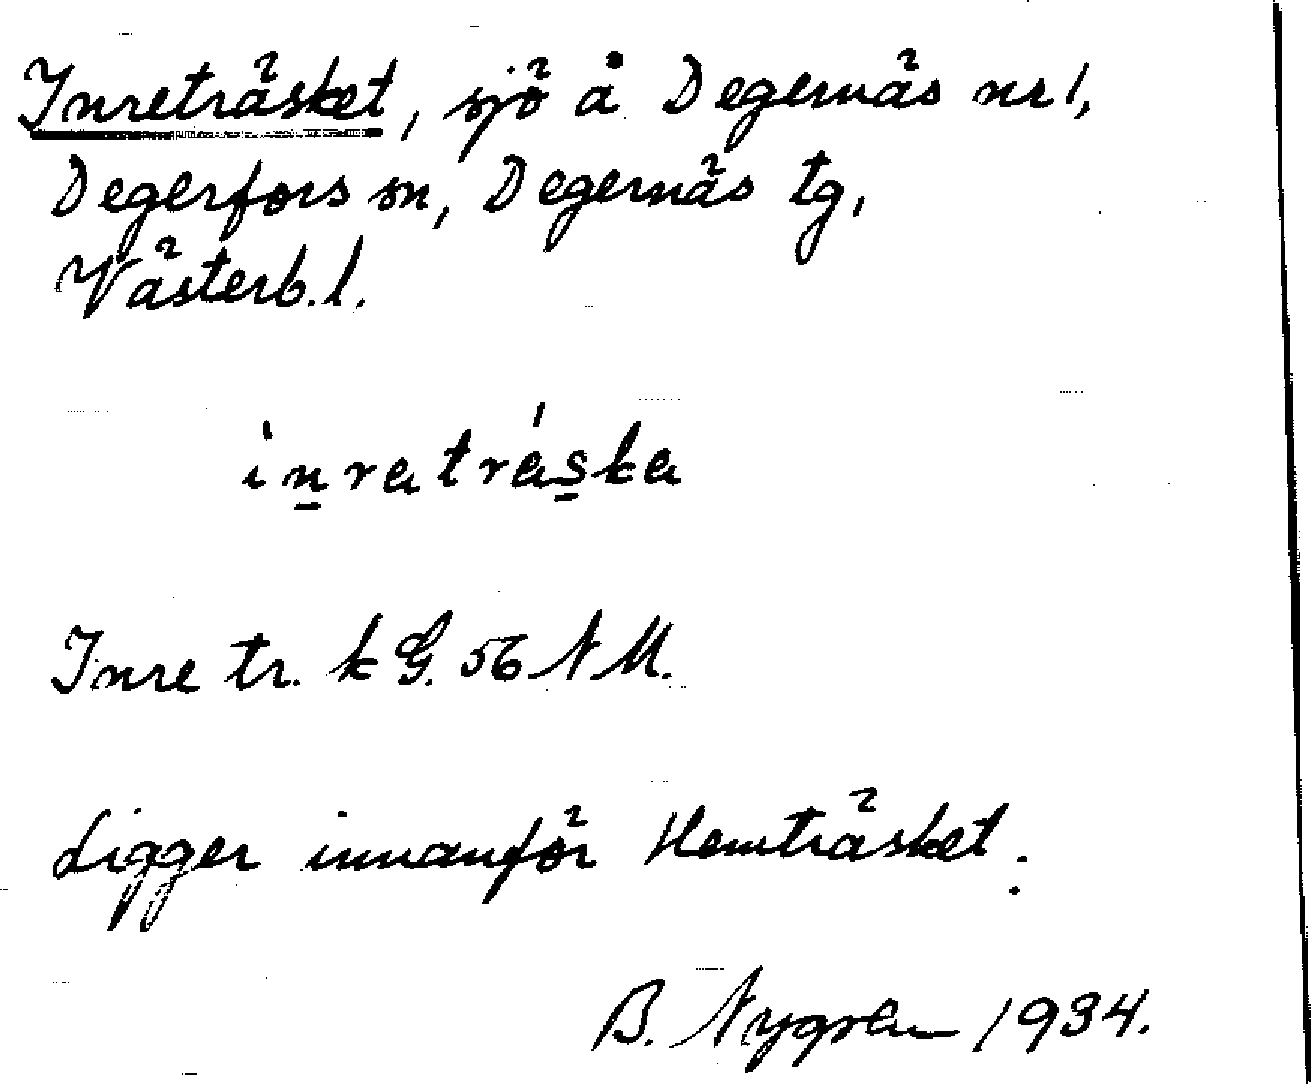 Inreträsket, sjö å Degernäs nr 1,
Degerfors sn, Degernäs tg,
Västerb. l.
ìn̠ratrás̠ka
Inre tr. k G. 56 N M.
Ligger innanför Hemträsket.
B. Nygren 1934.